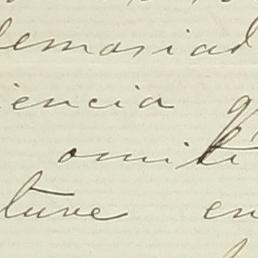 demasiad
iencia q
omiti
tuve en